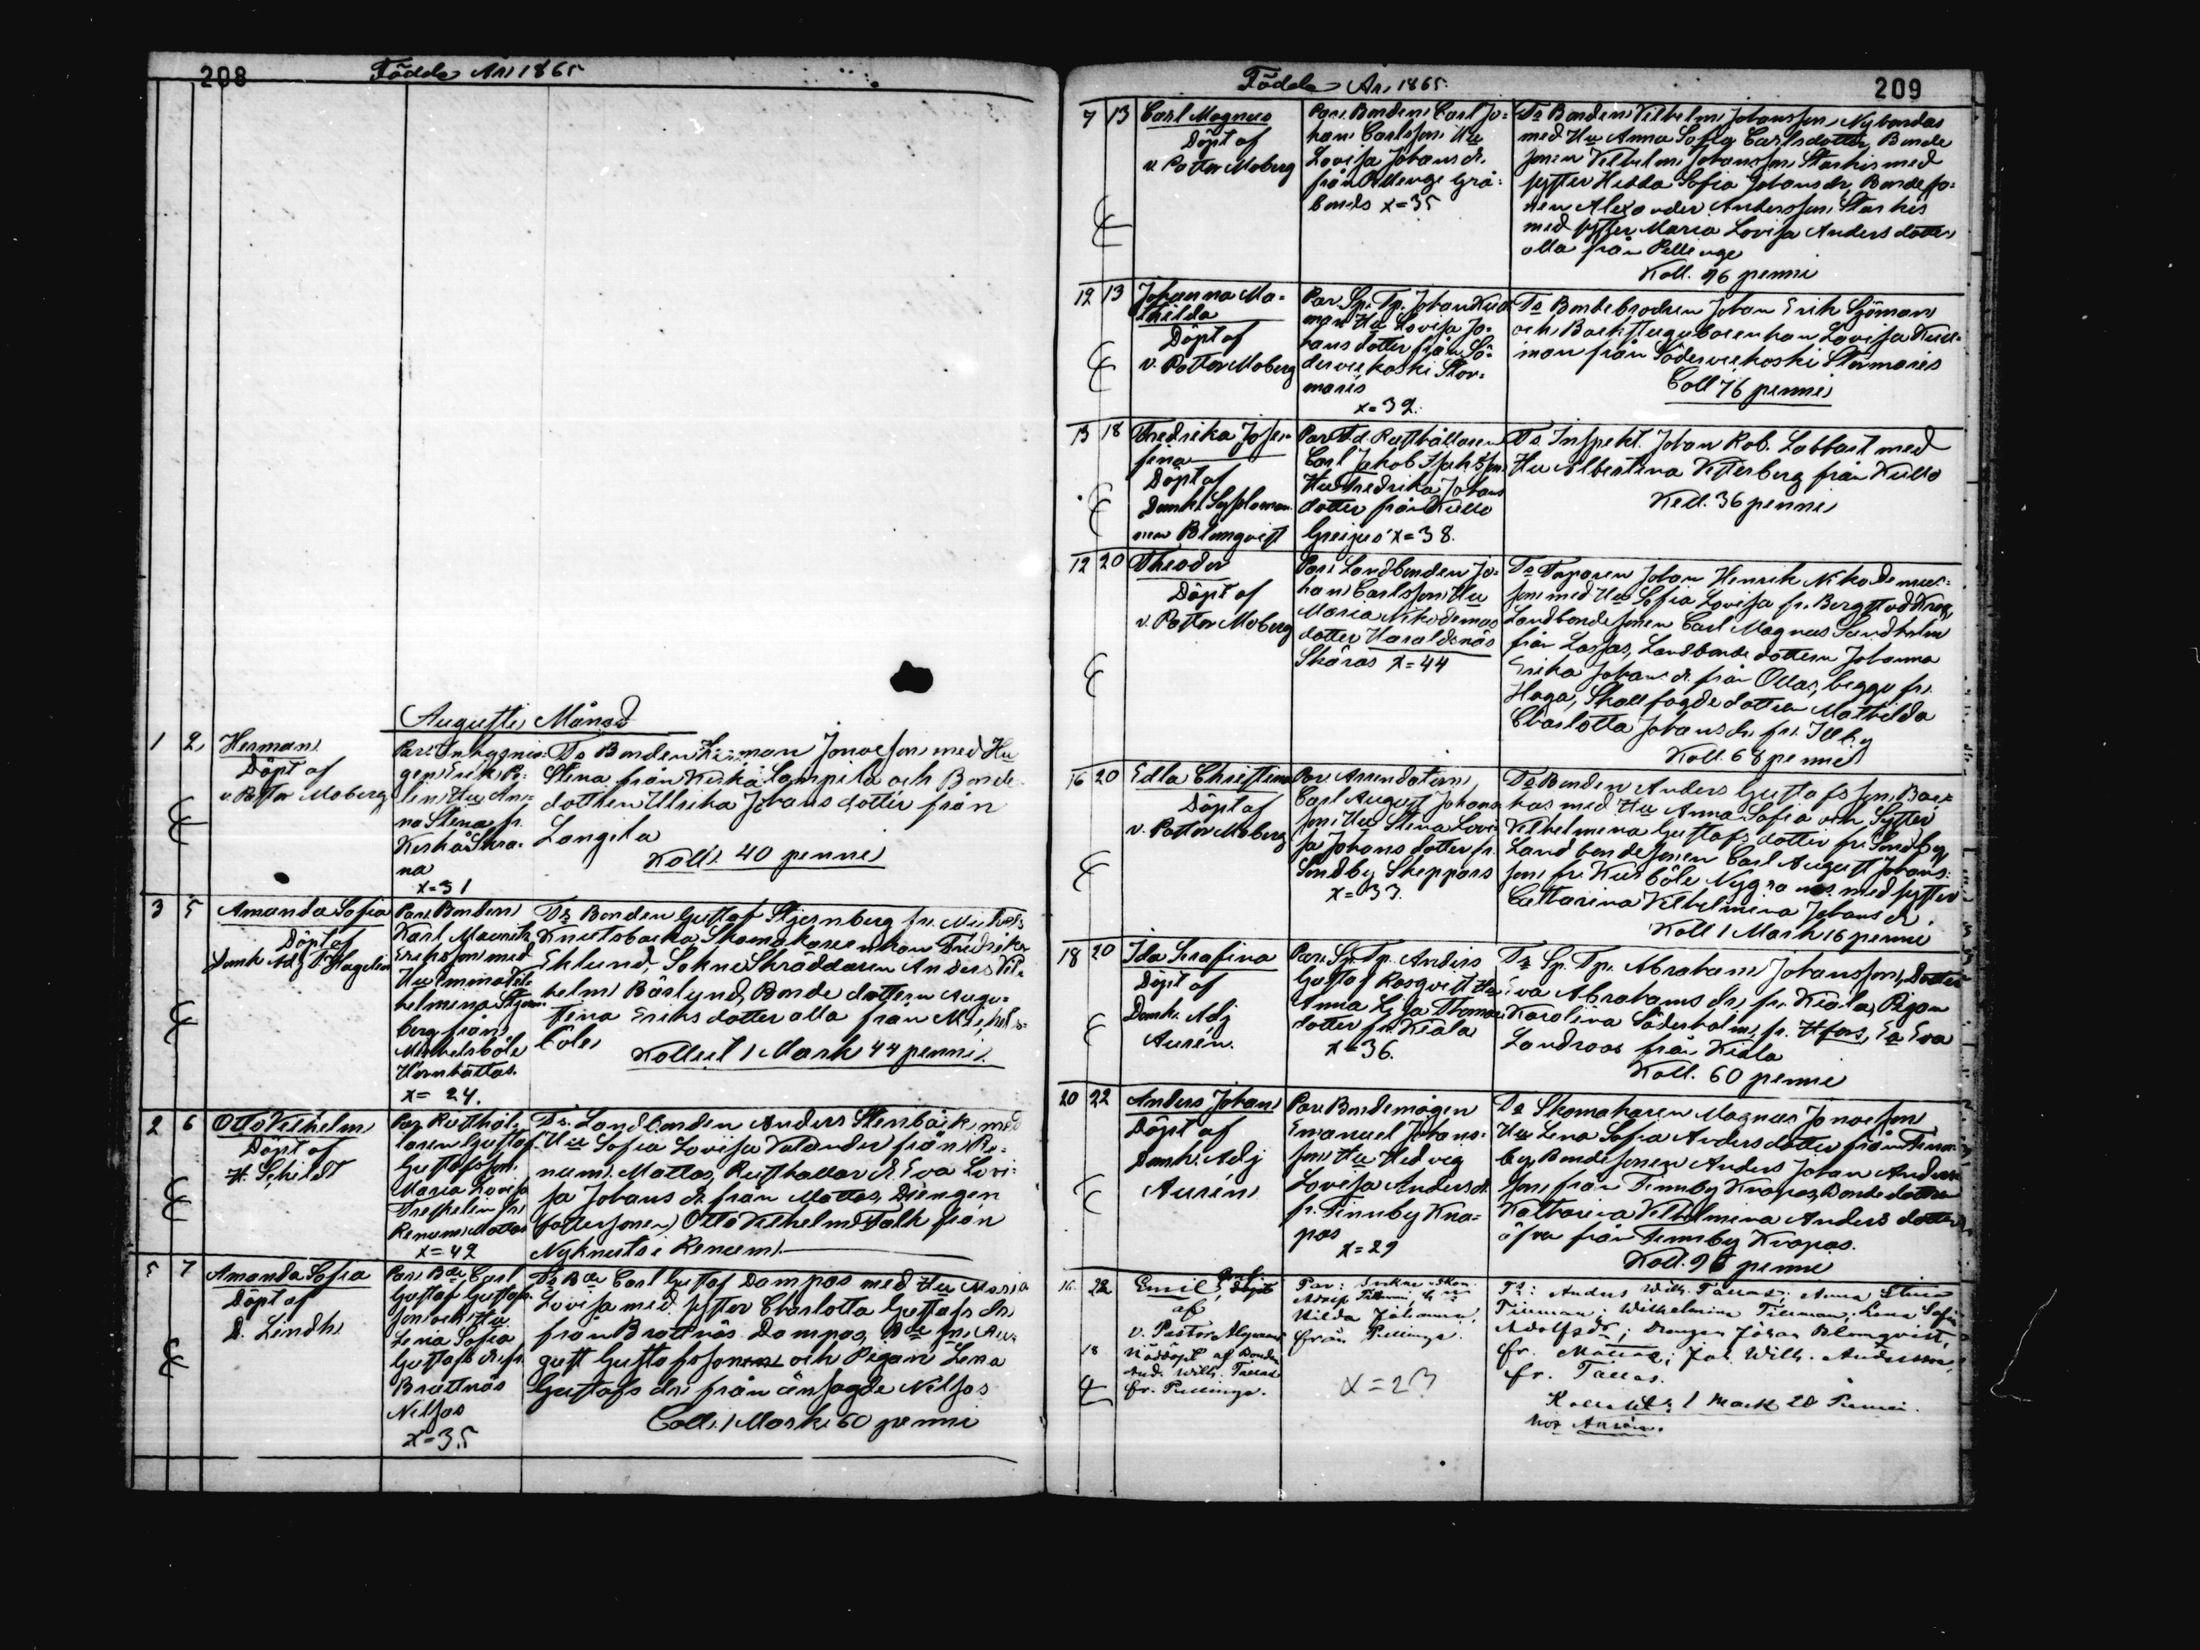 208
Födde År 1865
Augusti Månad
1 2 Herman
Döpt af
v. Pastor Moberg
Par. Inhysnin-
gen Erik
Hu An-
na Stena fr.
na
x=31
To Bonden Herman Jonasson med Hu
Stena från Lampila och Bonde
dottren Ulrika Johans dotter från
Langila
Koll. 40 penni
3 5 Amanda Sofia
Döpt af
Domk Adj Hagelin
Par. Bonden
Karl Mauritz
Eriksson med
Hu Vil-
helmina Stjern-
berg från
Mickelsböle
x= 24.
To Bonden Gustaf Stjernberg fr. Mickels
Knutsbacka Skomakareenkan Fredrika
Eklund, Sockne Skräddaren Anders Vil-
helm Bäslund, Bonde dottern Augu-
stina Eriks dotter alla från Mickels-
böle
Kollect 1 Mark 44 penni.
2 6 Otto Vilhelm
Döpt af
H. Schildt
Par. Rusthål-
laren Gustaf
Gustafsson
Maria Lovisa
fr.
Renum Mattas
x=42
To Landbonden Anders Stenbäck med
Hu Sofia Lovisa Valander från Re-
num Mattas, Rusthållar d. Eva Lovi-
sa Johans dr från Mattas, Drengen
fostersonen Otto Vilhelm Falk från
Nyknuts i Renum
5 7 Amanda Sofia
Döpt af
D. Lindh
Par. Bde Carl
Gustaf Gustafs-
son och Hu
Lena Sofia
Gustafs dr fr.
Brattnäs
Nilsas
x=35
To Bde Carl Gustaf Dampas med Hu Maria
Lovisa med syster Charlotta Gustafs dr
från Brattnäs Dampas, Bde sn Au-
gust Gustafsson och Pigan Lena
Gustafs dr från änsagde Nilsas
Coll. 1 Mark 60 penni
Födde År 1865.
209
7 13 Carl Magnus
Döpt af
v. Pastor Moberg
Par. Bonden Carl Jo-
han Carlsson Hu
Lovisa Johans dr.
från Pellinge Grä-
bonds x=35
To Bonden Vilhelm Johansson Nybondas
med Hu Anna Sofia Carlsdotter, Bonde
sonen Vilhelm Johansson Starkis med
syster Hedda Sofia Johans dr, Bondeso-
nen Alexander Andersson Starkis
med syster Maria Lovisa Anders dotter
alla från Pellinge
Koll. 96 penni
12 13 Johanna Ma-
thilda
Döpt af
v. Pastor Moberg
Par. Sp. Tp. Johan Kull-
man Hu Lovisa Jo-
hans dotter från Sö-
derveckoski Stor-
maris
x=32.
To Bondebrodren Johan Erik Sjöman
och Backstuguboenkan Lovisa Kull-
man från Söderveckoski Stormaris
Coll 76 penni
13 18 Fredrika Jose-
fina
Döpt af
Domk. Sysslomannen
Blomqvist
Par. F.d. Rusthållaren
Carl Jakob Isaksson
Hu Fredrika Johans
dotter från Kullo
Greijus x=38.
To Inspekt. Johan Rob. Labbart med
Hu Albertina Vesterberg från Kullo
Koll. 36 penni
12 20 Theodor
Döpt af
v. Pastor Moberg
Par. Landbonden Jo-
han Carlsson Hu
Maria Nikodemus
dotter Haraldsnäs
Skåras x=44
To Torparen Johan Henrik Nikodemus-
son med Hu Sofia Lovisa fr. Bergstad Krog,
Landbondesonen Carl Magnus Sandholm
från Lassas, Landbonde dottern Johanna
Erika Johans dr. från Ollas, begge fr.
Haga, Skallfogde dottern Mathilda
Charlotta Johans dr. fr. Illby
Koll. 68 penni
16 20 Edla Christina
Döpt af
v. Pastor Moberg
Par. Arrendatorn
Carl August Johans-
son Hu Stena Lovi-
sa Johans dotter fr.
Sondby Skeppars
x=33.
To Bonden Anders Gustafsson Bac-
kas med Hu Anna Sofia och Syster
Vilhelmina Gustafs dotter fr. Sondby,
Landbondesonen Carl August Johans-
son fr. Kurböle Nygranas med syster
Catharina Vilhelmina Johans dr.
Koll 1 Mark 16 penni
18 20 Ida Serafina
Döpt af
Domk. Adj
Aurén.
Par. Sp. Tp. Anders
Gustaf Rosqvist Hu
Anna Lisa Thomas
dotter fr. Kiala
x=36.
To Sp. Tp. Abraham Johansson, Dotter
Eva Abrahams dr, fr. Kiala, Pigan
Karolina Söderholm, fr. Hfors, Ea Eva
Landroos från Kiala
Koll. 60 penni
20 22 Anders Johan
Döpt af
Domk. Adj
Aurén
Par. Bondemågen
Emanuel Johans-
son Hu Hedvig
Lovisa Anders dr.
fr. Finnby Kna-
pas
x=29
To Skomakaren Magnus Jonasson
Hu Lena Sofia Anders dotter från Finn-
by, Bondesonen Anders Johan Anders-
son från Finnby Knapas, Bonde dottren
Katharina Vilhelmina Anders dotter
äfven från Finnby Knapas.
Koll. 96 penni
16. 22 Emil, döpt
af
v. Pastor
18 Nöddöpt af Bonden
And. Wilh. Tallas
fr. Pellinge.
Par:
Adolf Tillman, o.
Hilda Johanna,
från Pellinge.
x=23
To: Anders Wilh. Tallas; Anna Stina
Tillman; Wilhelmina Tillman; Lena Sofia
Adolfsdr; Drengen Johan Blomqvist,
fr. Mattas; Joh. Wilh. Andersson,
fr. Tallas.
Kollekt: 1 Mark 20 Penni.